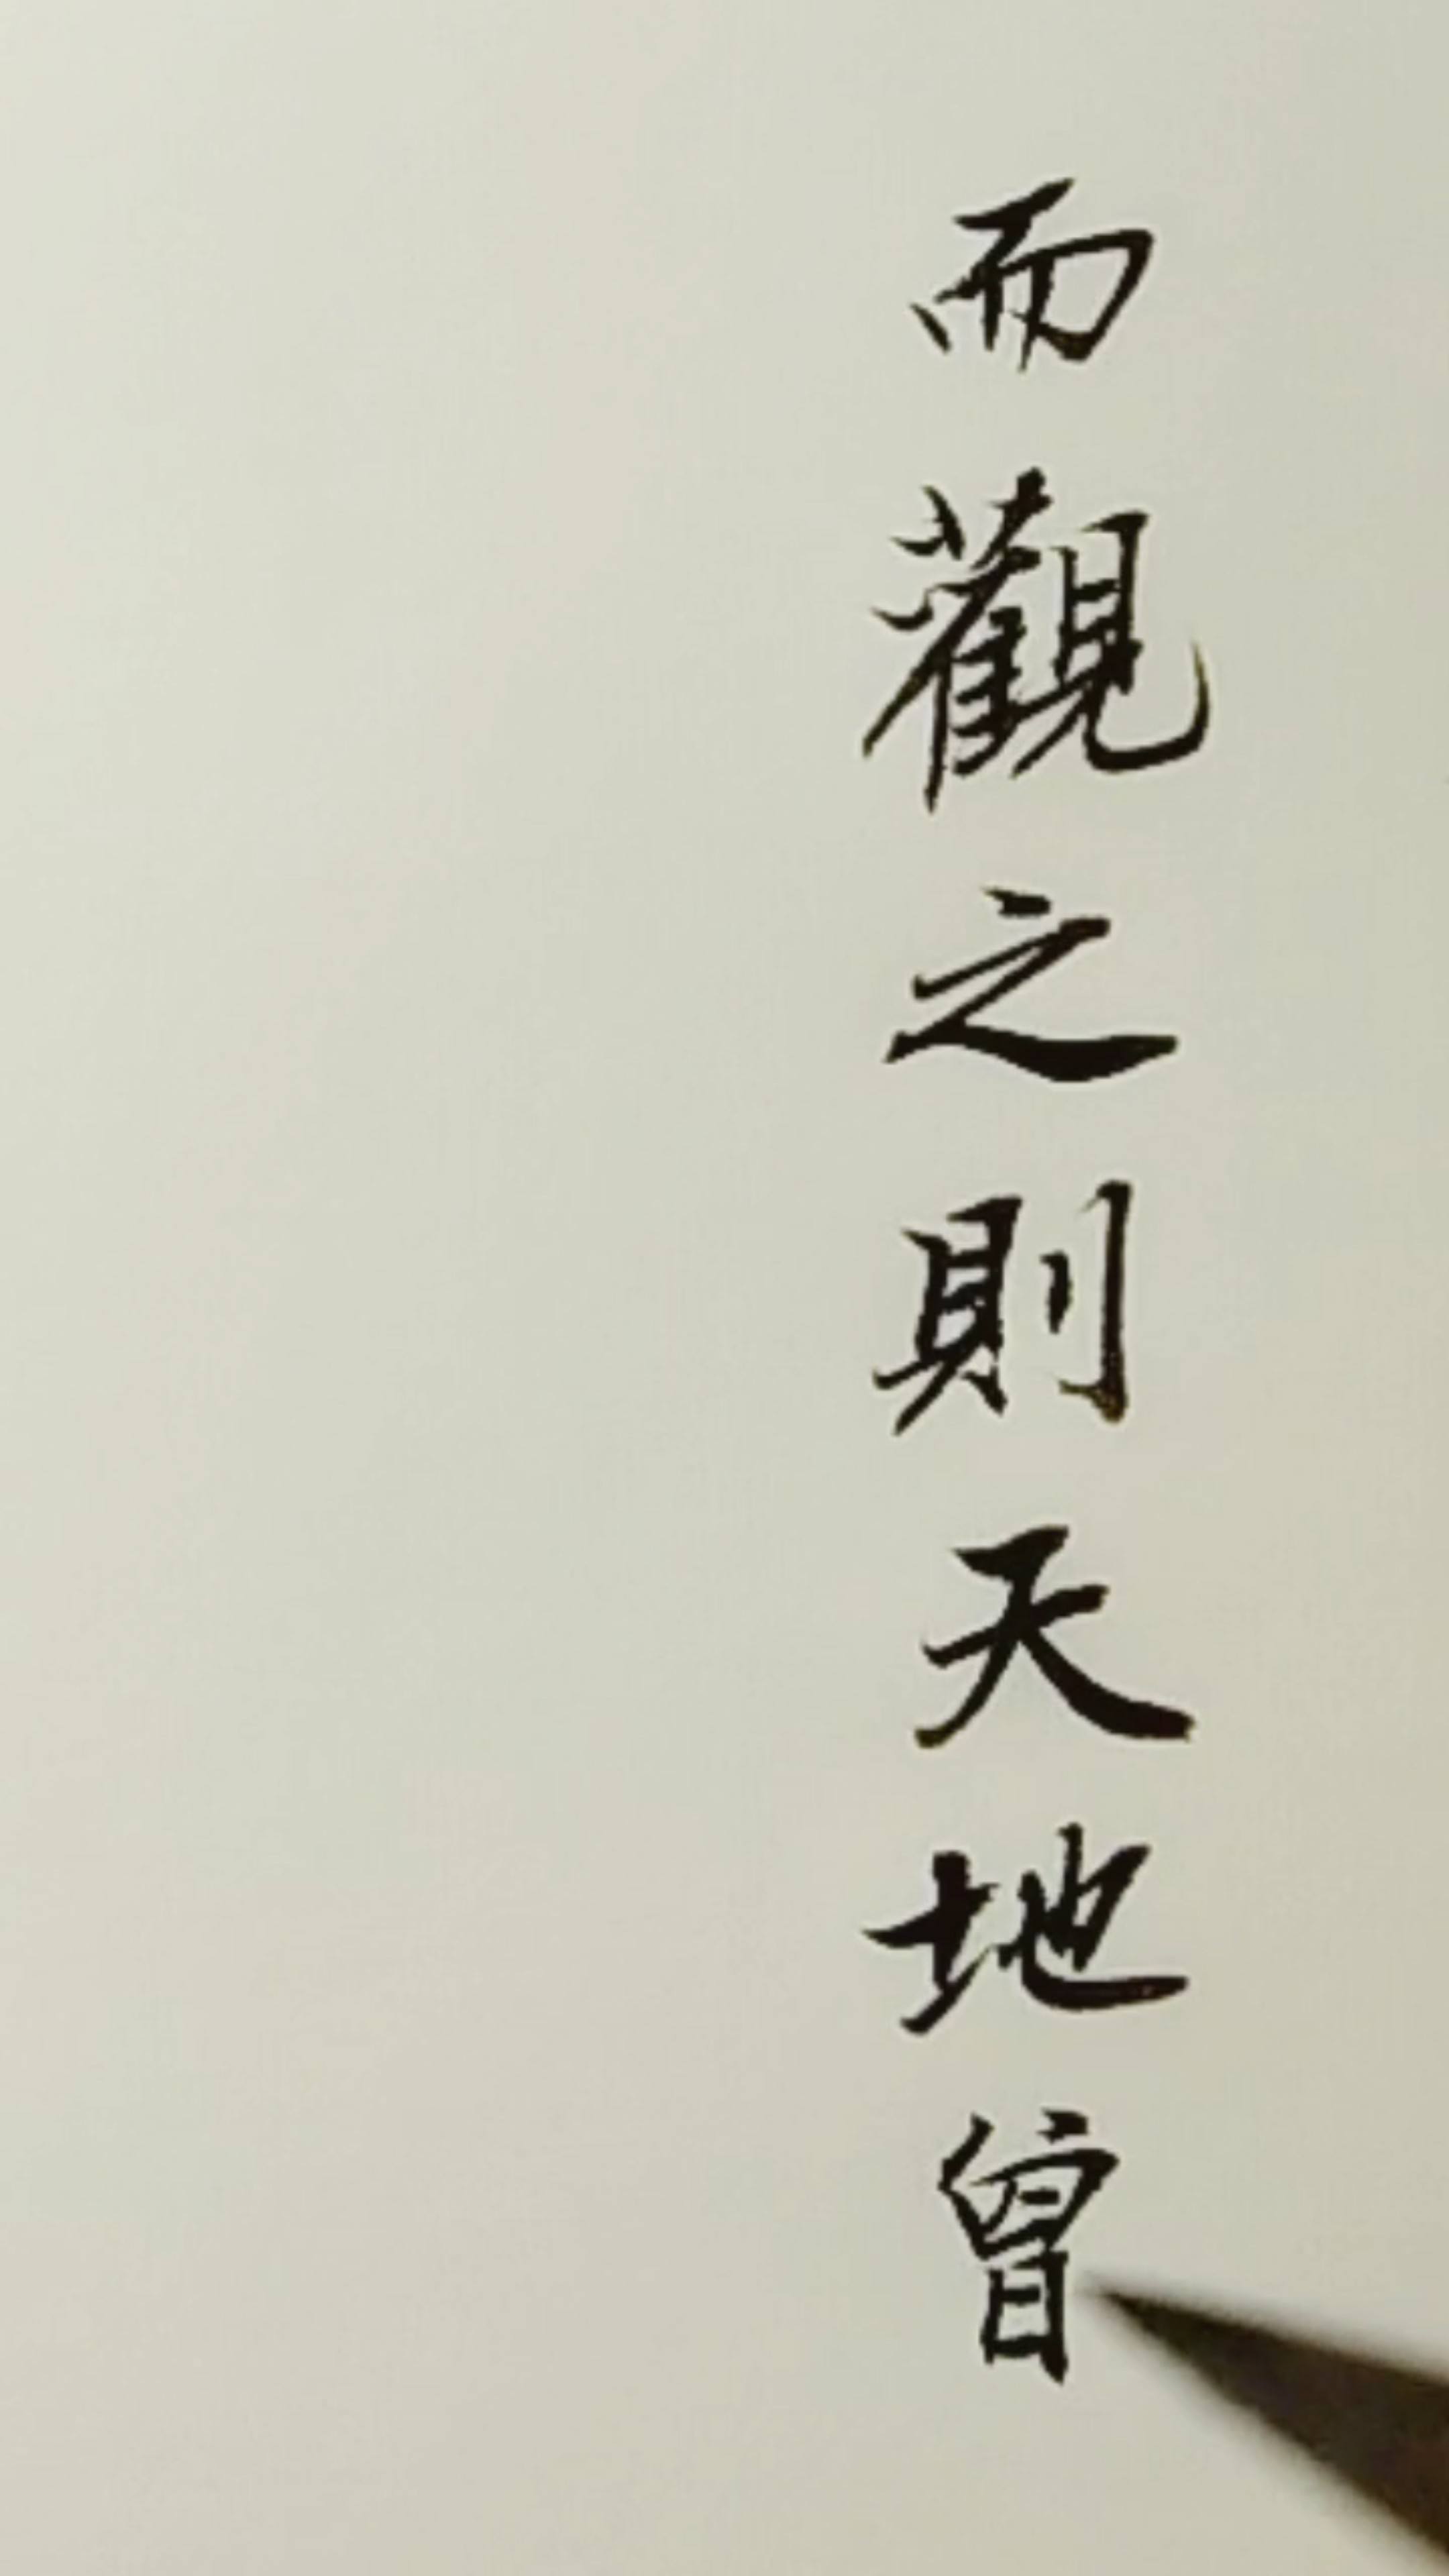 而觀之則天地曾